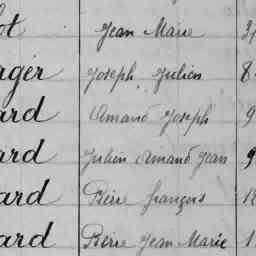 ot Jean Marie 3
rger Joseph Julien 8
ard Amand Joseph 9
ard Julien Amand Jean 9
ard Pierre françois 12
ard Pierre Jean Marie 1